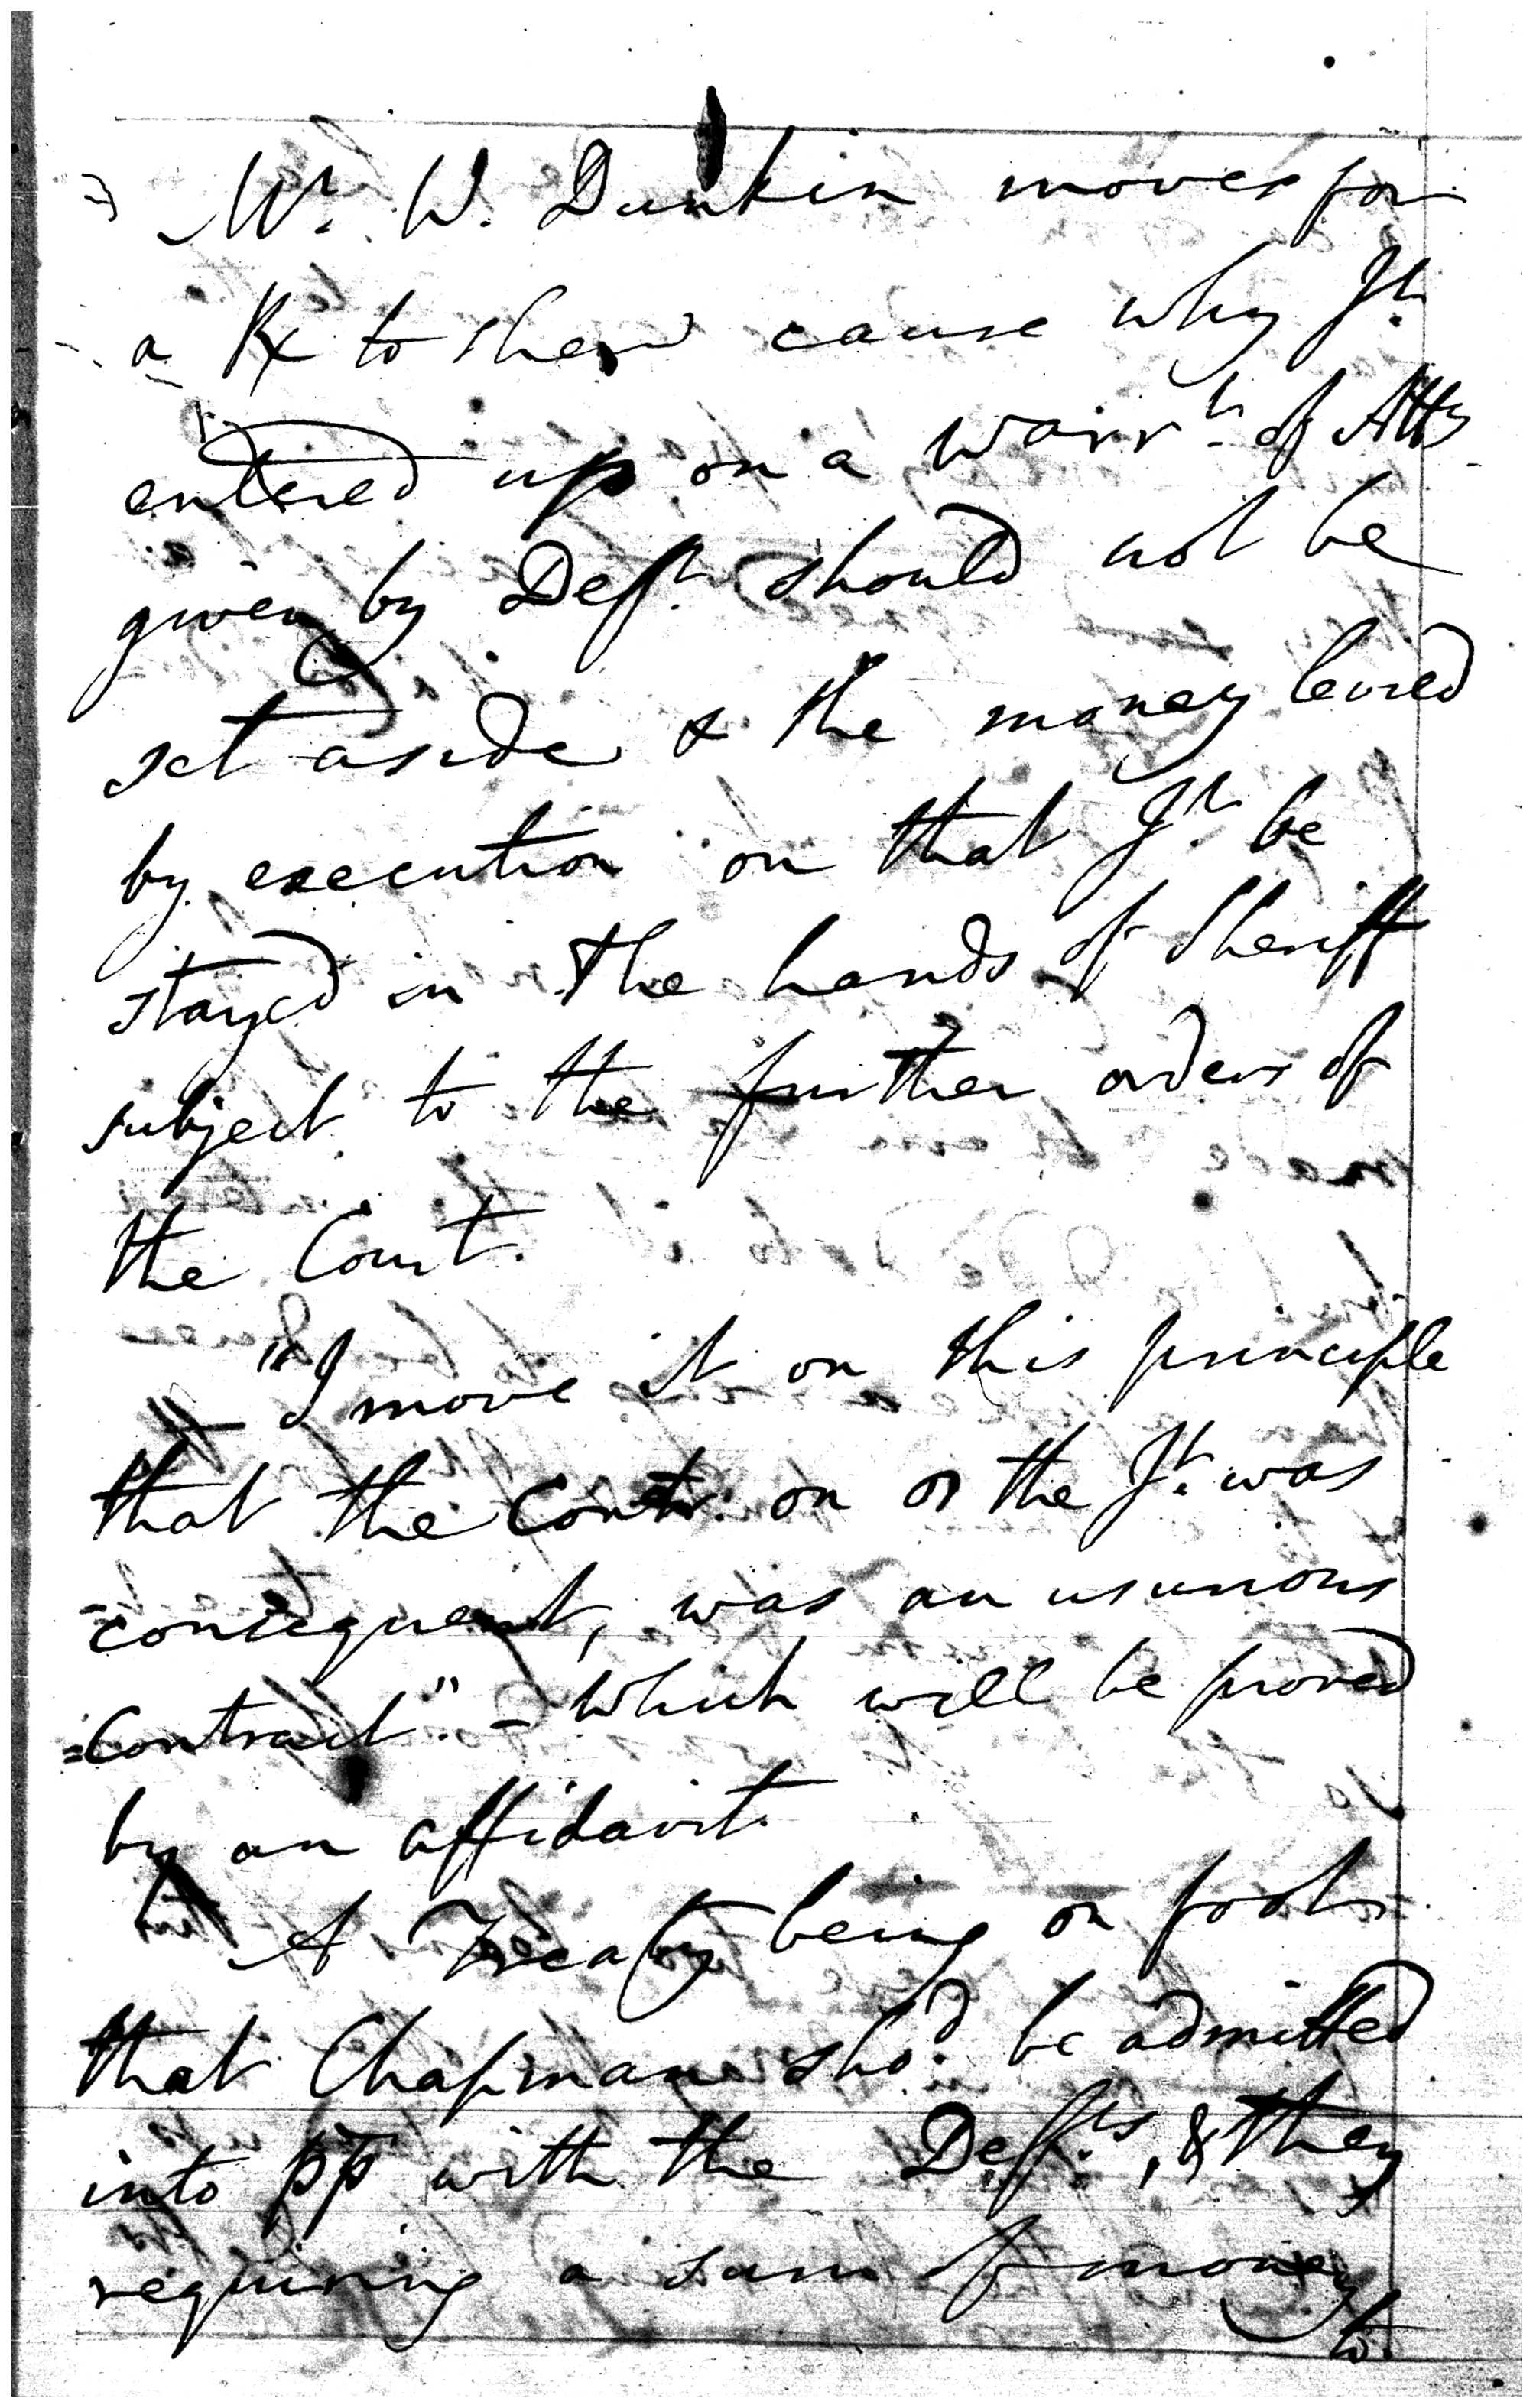 Mr. W. Dunkin moves for
a Rx to shew cause why Jt.
entered up on a warrt. of Atty
given by Deft. should not be
set aside & the money levied
by execution on that Jt. be
stayed in the hands of Sheriff
subject to the further orders of
the Court.
"I move it on this principle
that the Contr. on the Jt. was
consequent, was an usurious
=Contract". - Which will be proved
by an affidavit.
A Treaty being on foot
that Chapman sho.d be admitted
into pp with the Defts., & they
requiring a sum of money
to.